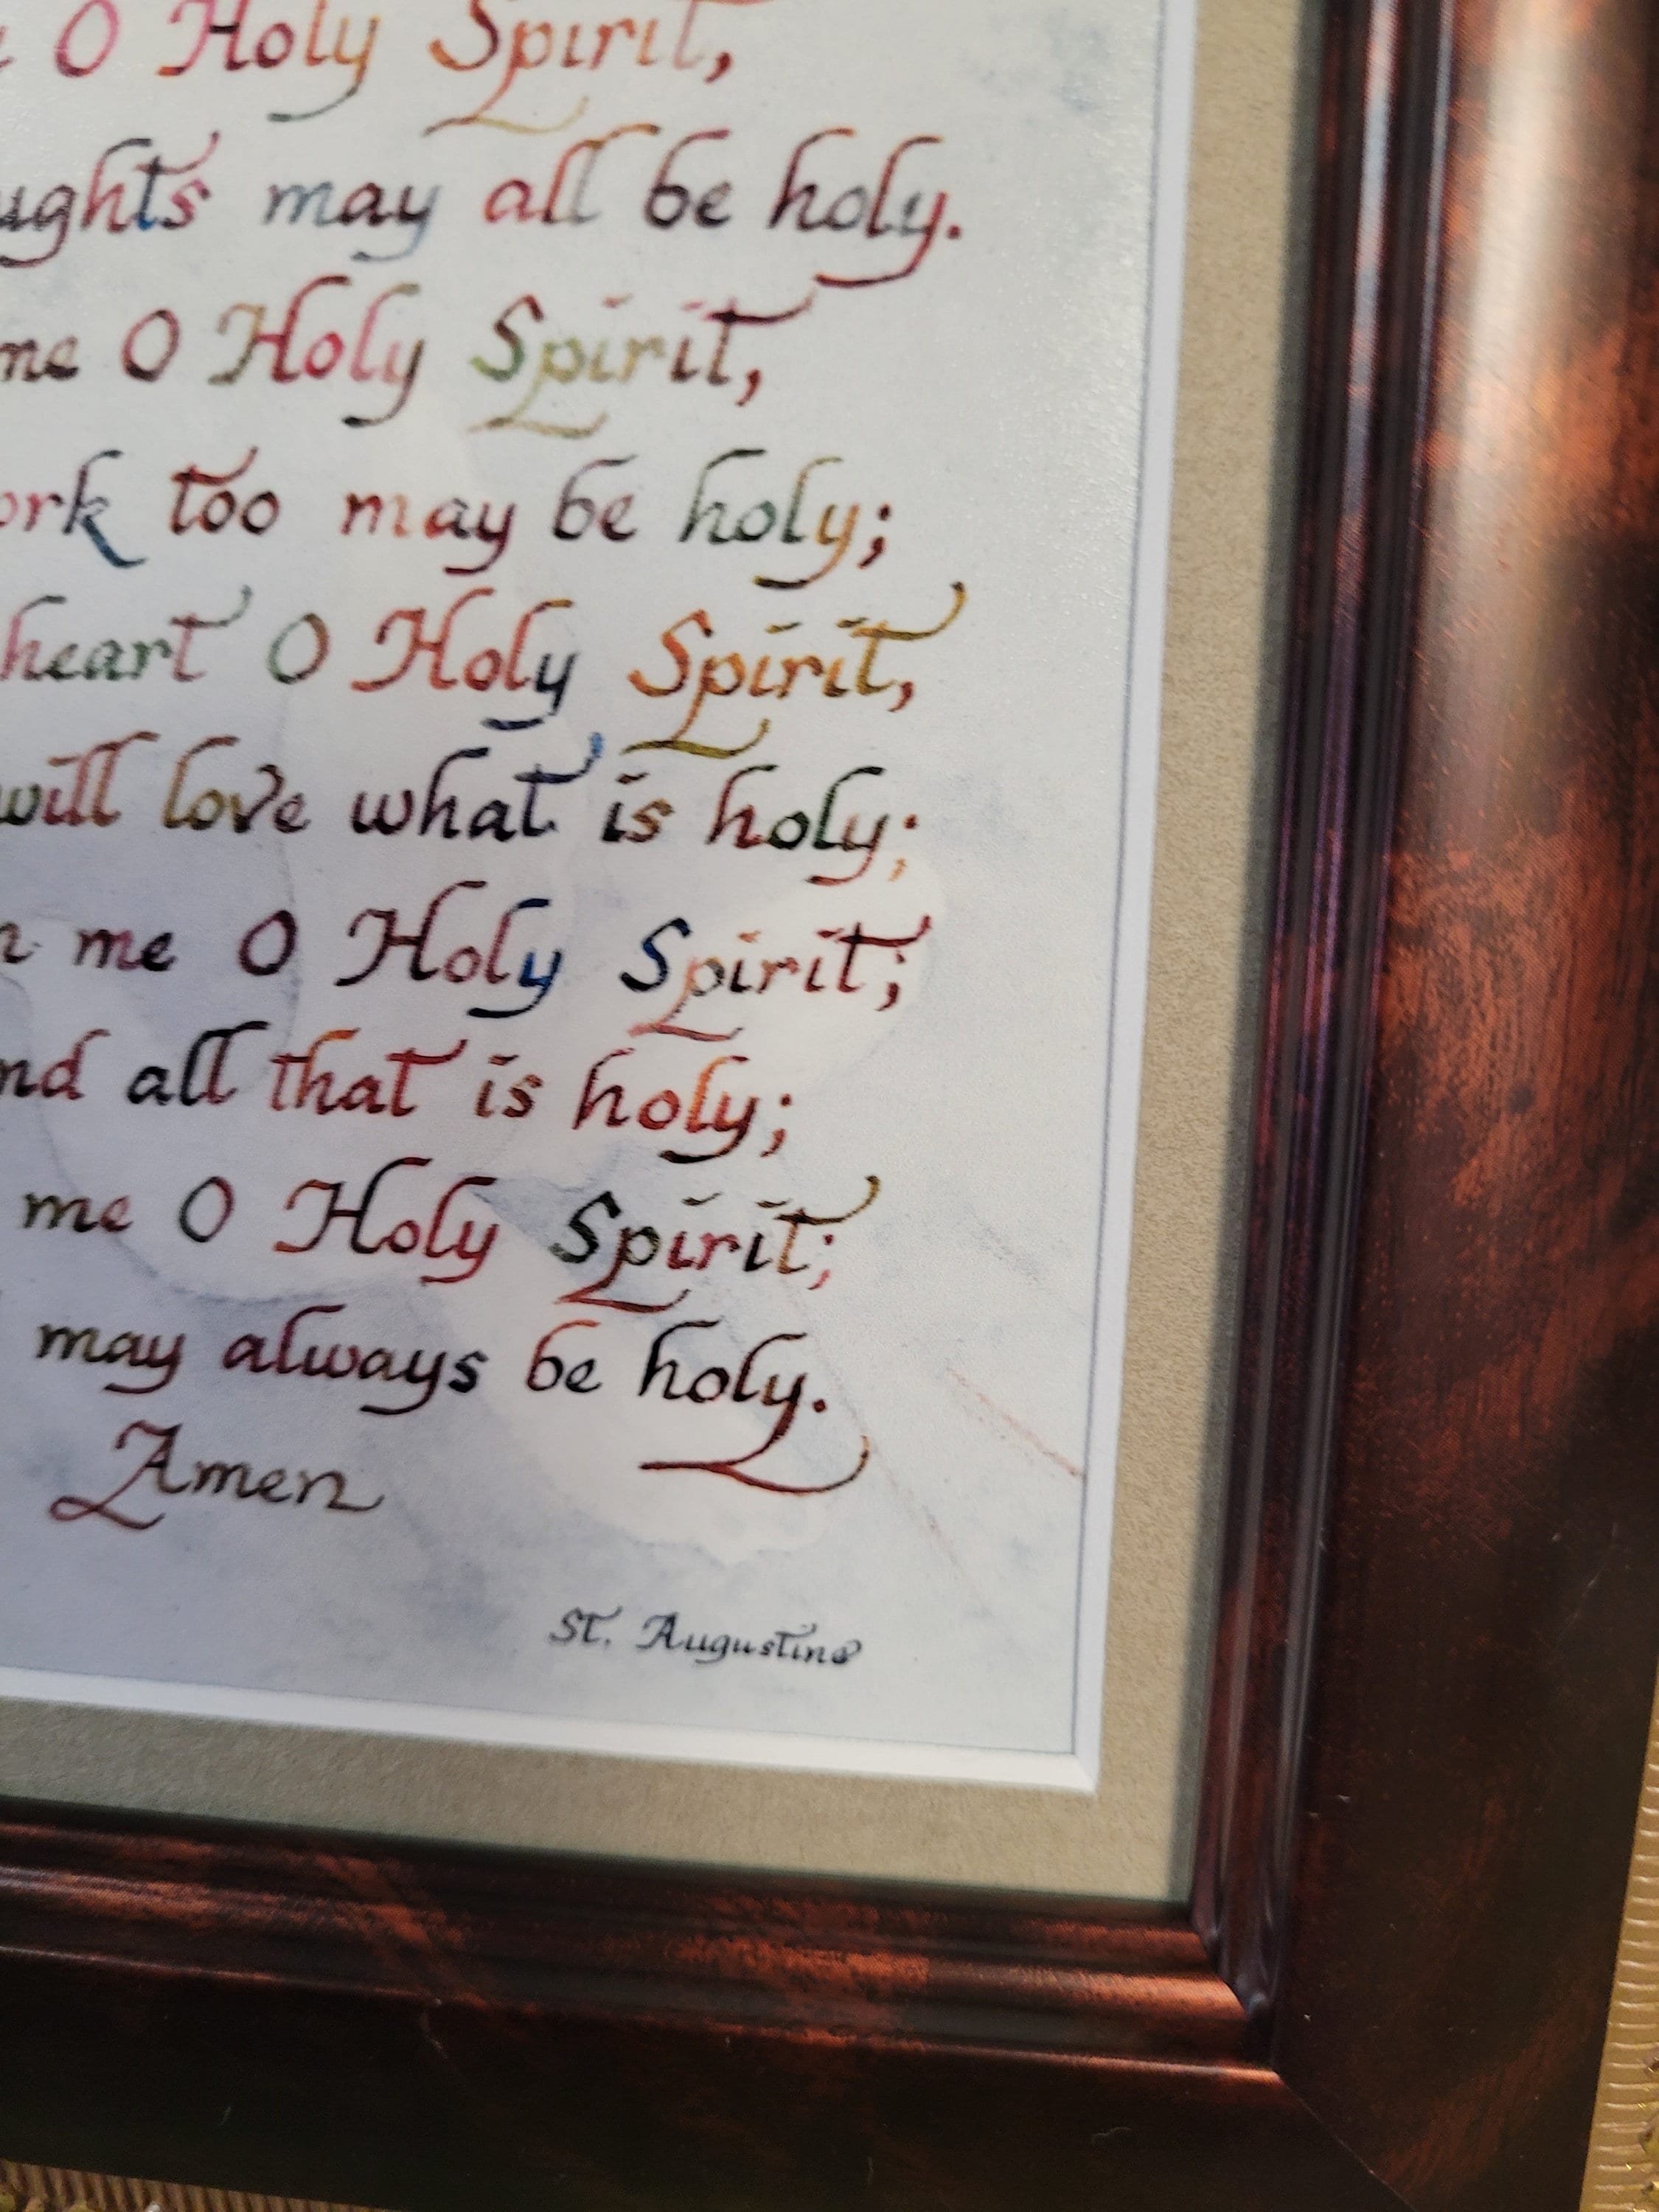 O Holy Spirit,
ughts may all be holy.
me O Holy Spirit,
ork too may be holy;
heart O Holy Spirit,
will love what is holy;
n me O Holy Spirit;
nd all that is holy;
me O Holy Spirit;
may always be holy.
Amen
St. Augustine